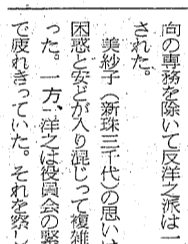 向の専務を除いて反洋之派は一
された。
美紗子（新珠三千代）の思いは
困惑と安どが入り混じって複雑
った。一方、洋之は役員会の緊
で疲れきっていた。それを察し